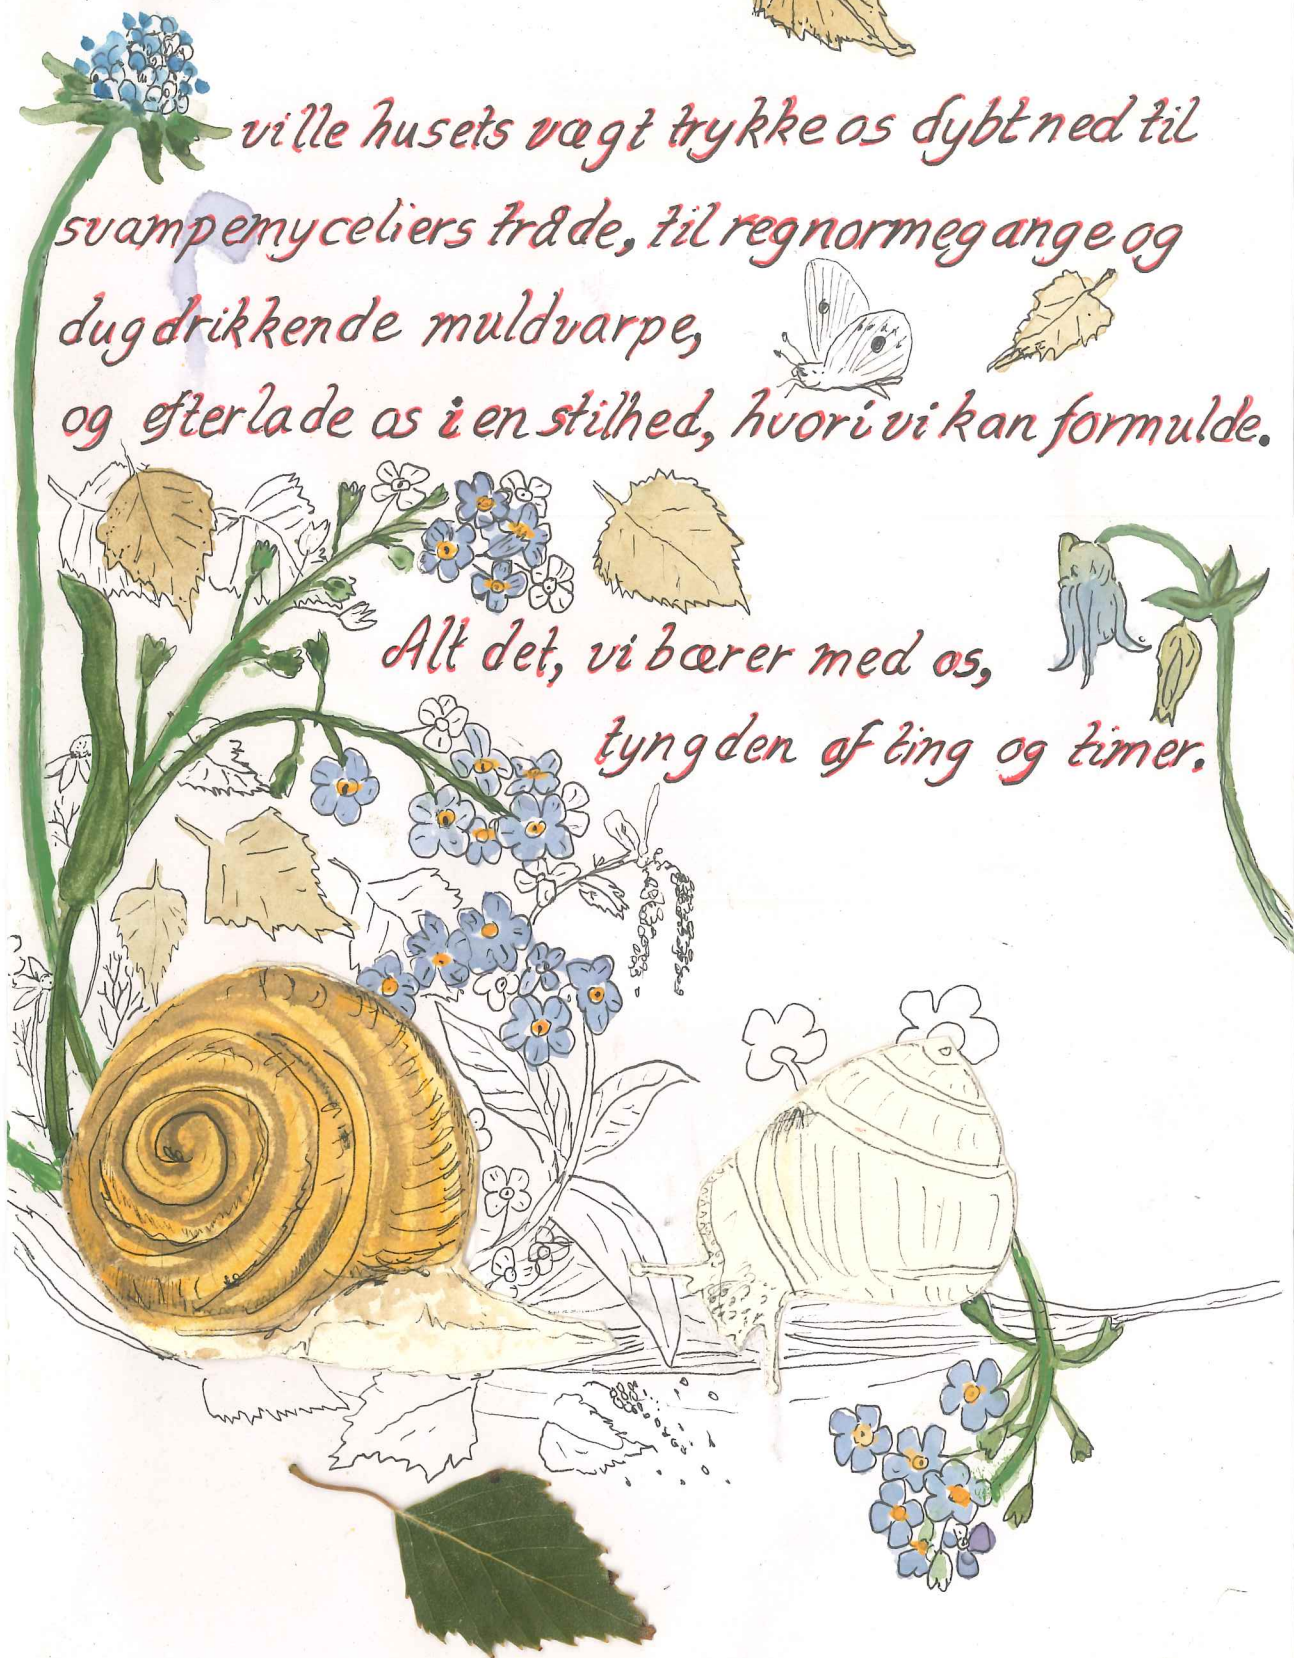 ville husets vægt trykke os dybt ned til
svampemyceliers tråde, til regnormegange og
dugdrikkende muldvarpe,
og efterlade os i en stilhed, hvori vi kan formulde.
Alt det, vi bærer med os,
tyngden af ting og timer.